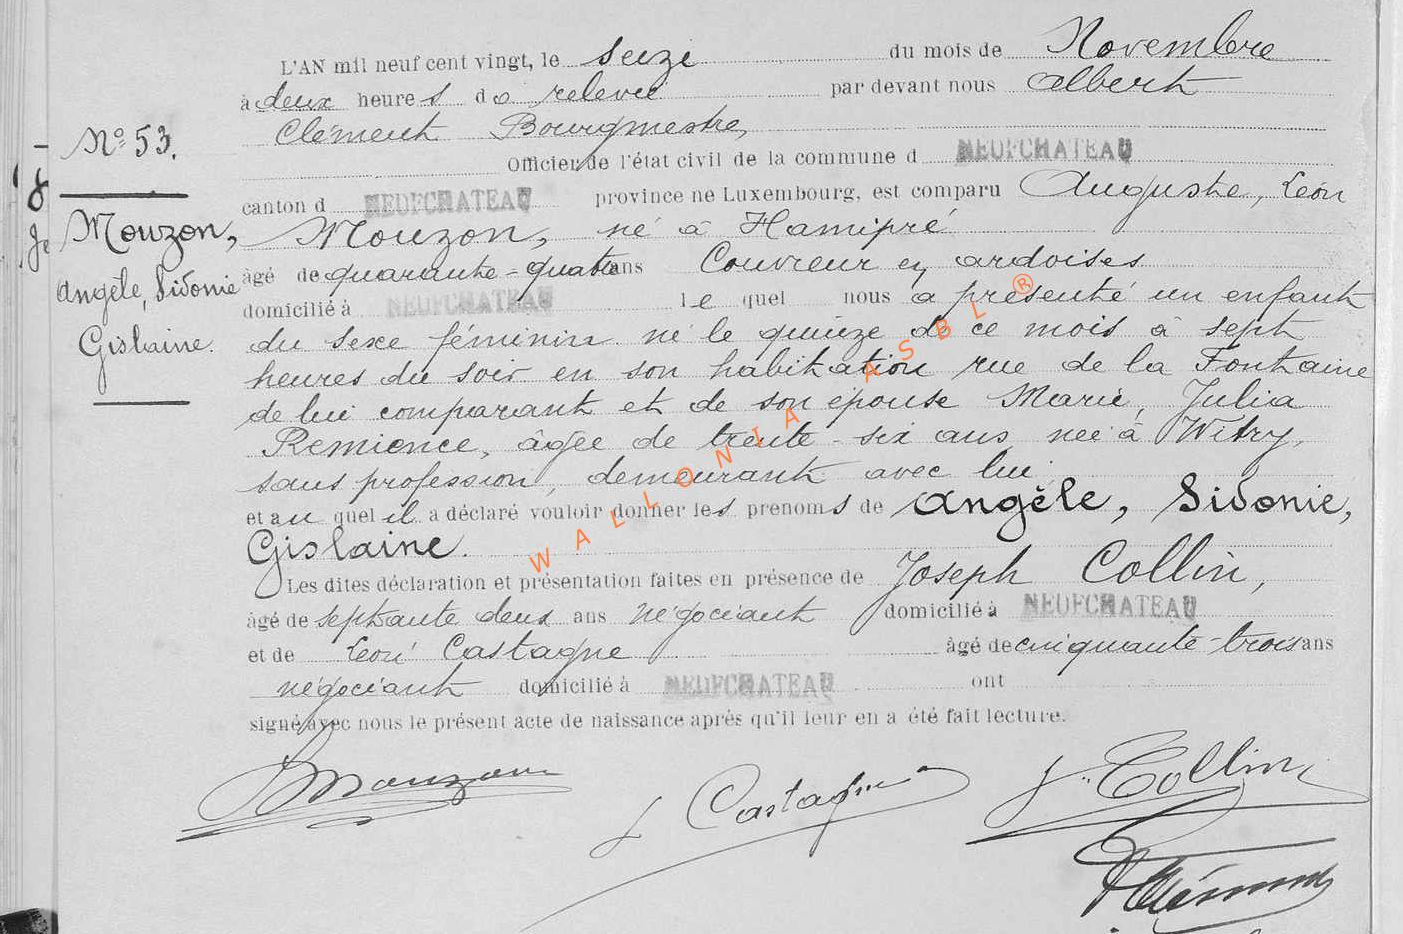 L'AN mil neuf cent vingt, le seize du mois de Novembre
à deux heures de relevée par devant nous Albert
Clément Bourgmestre,
Officier de l'état civil de la commune d NEUFCHATEAU
canton d NEUFCHATEAU province de Luxembourg, est comparu Auguste, Léon
Mouzon, né à Hamipré
âgé de quarante-quatre ans Couvreur en ardoises
domicilié à NEUFCHATEAU lequel nous a présenté un enfant
du sexe féminin né le quinze de ce mois à sept
heures du soir en son habitation rue de la Fontaine
de lui comparant et de son épouse Marie, Julia
Remience, âgée de trente-six ans née à Witry,
sans profession, demeurant avec lui
et au quel il a déclaré vouloir donner les prenoms de Angèle, Sidonie,
Gislaine.
Les dites déclaration et présentation faites en présence de Joseph Collin,
âgé de septante deux ans négociant domicilié à NEUFCHATEAU
et de Léon Castagne âgé de cinquante-trois ans
négociant domicilié à NEUFCHATEAU ont
signé avec nous le présent acte de naissance après qu'il leur en a été fait lecture.
Mouzon
L Castagne
J. Collin
A Clément
N° 53.
Mouzon,
Angèle, Sidonie
Gislaine.
WALLONIA ASBL ®